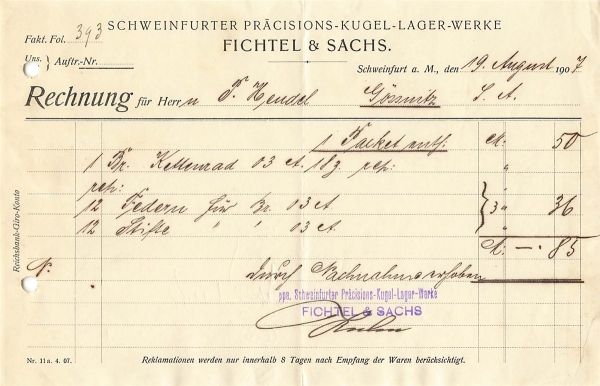 SCHWEINFURTER PRÄCISIONS-KUGEL-LAGER-WERKE
FICHTEL & SACHS.
Fakt. Fol. 393
Uns. Auftr.-Nr.
Schweinfurt a. M., den 19. August 1907
Rechnung für Herrn P. Hendel Gössnitz S. A.
1 Packet entf: M. 50
1 Br. Kettenrad 03 A 18 z rep: "
rep:
12 Federn für Br. 03 A } 3 " 36
12 Stifte " " 03 A
M. — 85
N.
durch Nachnahme erhoben
ppa. Schweinfurter Präcisions-Kugel-Lager-Werke
FICHTEL & SACHS
Reichsbank-Giro-Konto
Nr. 11 a. 4. 07.
Reklamationen werden nur innerhalb 8 Tagen nach Empfang der Waren berücksichtigt.